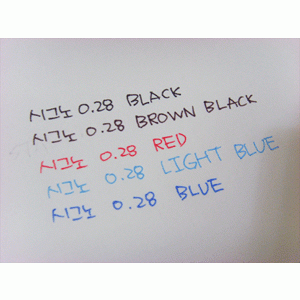 시그노 0.28 BLACK
시그노 0.28 BROWN BLACK
시그노 0.28 RED
시그노 0.28 LIGHT BLUE
시그노 0.28 BLUE